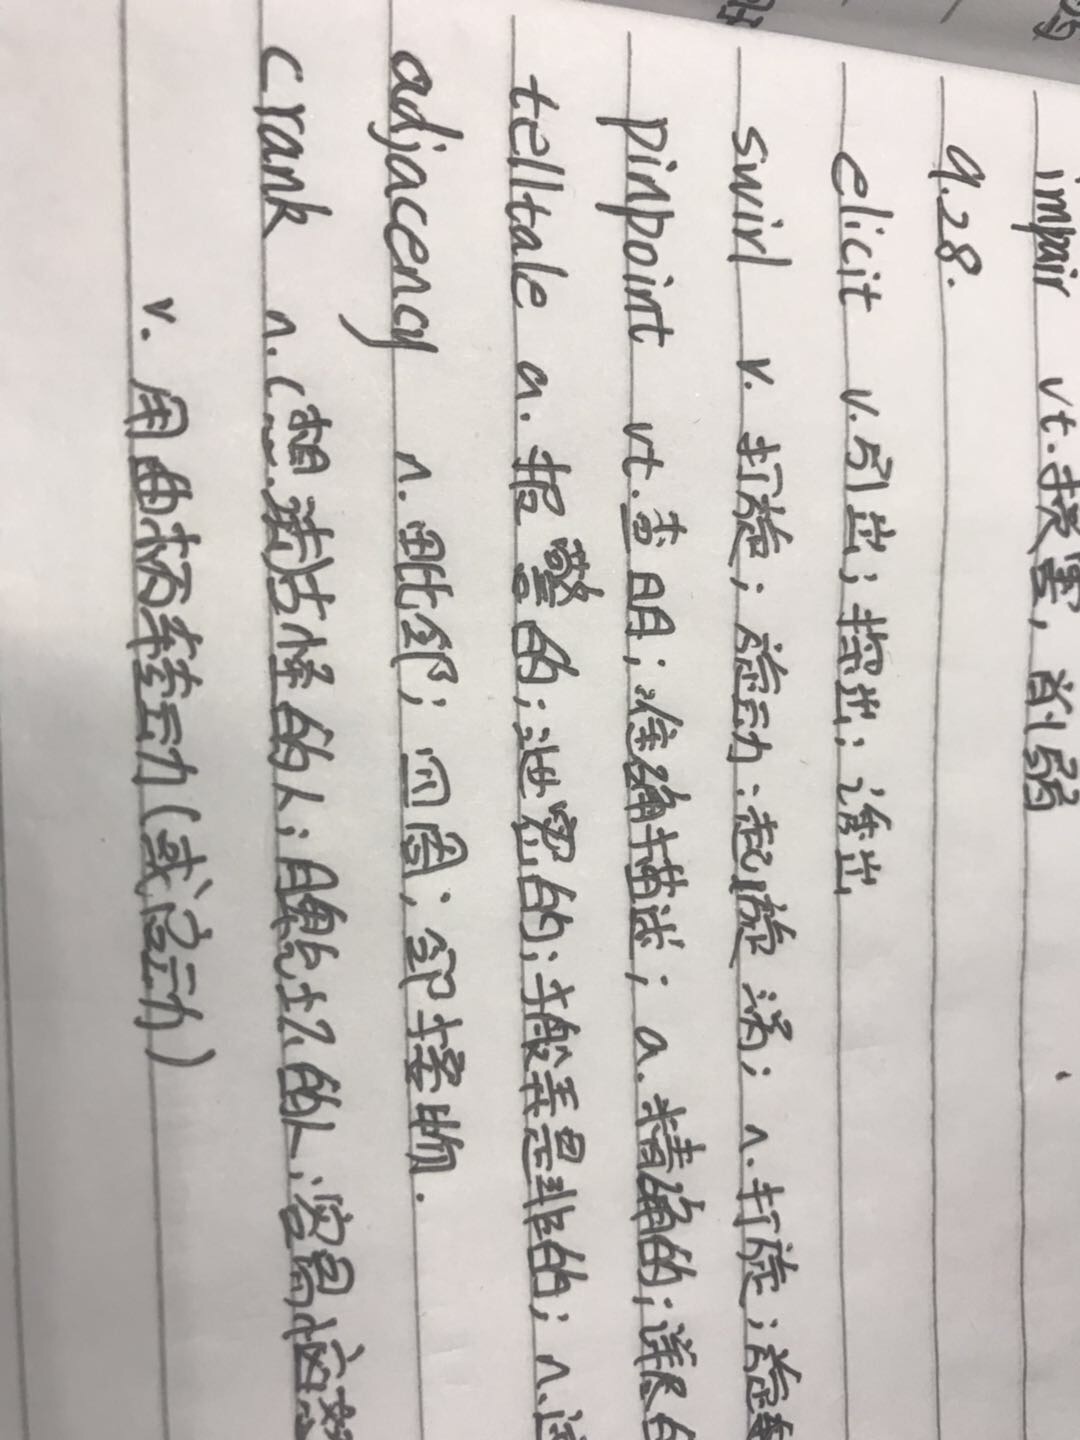 impair vt.损害，削弱
9.28.
elicit v.引出；探出；诱出
swirl v. 打旋；旋动；起漩涡；n.打旋；旋
pinpoint vt.查明；准确描述；a.精确的；详尽的
telltale a.报警的；泄密的；搬弄是非的；n.
adjacency n.毗邻；四周；邻接物.
crank n.(想法)古怪的人；脾气坏的人；容易
v. 用曲柄转动(或启动)